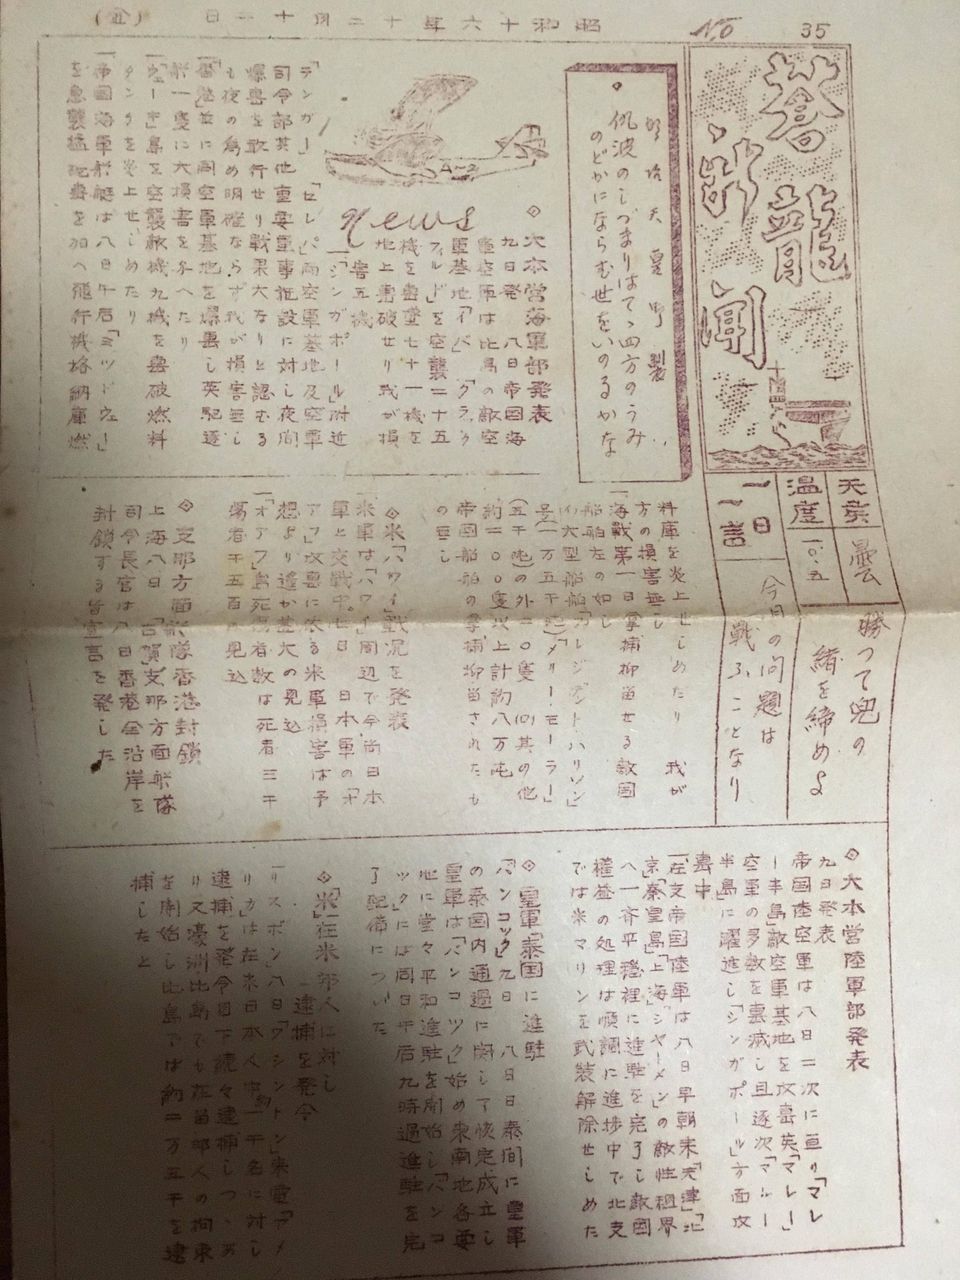 昭和十六年十二月十一日
No 35
蒼龍新聞
天気
曇
温度
一〇.五
一日一言
勝つて兜の
緒を締めよ
今日の問題は
戦ふことなり
明治天皇御製
仇波のしづまりはてゝ四方のうみ
のどかにならむ世をいのるかな
A-2
news
◇大本営海軍部発表
九日発 八日帝国海
軍航空軍は比島の敵空
軍基地「イバ」「クラーク
フィルド」を空襲二十五
機を撃墜七十一機を
地上撃破せり我が損
害五機
「シンガポール」附近
「テンガー」「セレパ」両空軍基地及空軍
司令部其他重要軍事施設に対し夜間
爆撃を敢行せり戦果大なりと認むる
も夜の為め明確ならず我が損害無し
香港並に同空軍基地を爆撃し英駆逐
船一隻に大損害を与へたり
「ウェーキ」島を空襲敵機九機を撃破燃料
タンクを炎上せしめたり
帝国海軍船艇は八日午后「ミッドウェー」
を急襲猛砲撃を加へ飛行機格納庫燃
料庫を炎上せしめたり 我が
方の損害無し
海戦第一日拿捕抑留せる敵国
船舶左の如し
(一)大型船舶「プレジデントハリソン」
号(一万五千屯)「メリーモーラー」
(五千屯)の外二〇隻 (二)其の他
約二〇〇隻以上計約八万屯
帝国船舶の拿捕抑留されたも
の無し
◇米「ハワイ」戦況を発表
米軍は「ハワイ」周辺で今尚日本
軍と交戦中。七日 日本軍の「オ
アフ」攻撃に依る米軍損害は予
想より遙か甚大の見込
「オアフ」島死傷者数は死者三千
傷者千五百の見込
◇支那方面艦隊香港封鎖
上海八日 「古賀」支那方面艦隊
司令長官は八日香港全沿岸を
封鎖する旨宣言を発した
◇大本営陸軍部発表
九日発表
帝国陸空軍は八日二次に亘り「マレ
ー半島」敵空軍基地を攻撃英「マレー」
空軍の多数を撃滅し且逐次「マレー
半島」に躍進し「シンガポール」方面攻
撃中
「在支帝国陸軍は八日早朝来「天津」「北
京」「秦皇島」「上海」「シヤーメン」の敵性租界
へ一斉平穏裡に進駐を完了し敵国
権益の処理は順調に進捗中で北支
では米マリンを武装解除せしめた
◇皇軍泰国に進駐
「バンコック」九日 八日日泰間に皇軍
の泰国内通過に関し了解定成立し
皇軍は「バンコック」始め東南地各要
地に堂々平和進駐を開始し「バンコ
ック」には同日午后九時過進駐を完
了配備についた
◇「米」在米邦人に対し
逮捕を発令
「リスボン」八日「ワシントン」来電「アメ
リカ」は在米日本人約一千名に対し
逮捕を発令目下続々逮捕しつゝあ
り又濠洲比島でも在留邦人の拘束
を開始し比島では約二万五千を逮
捕したと